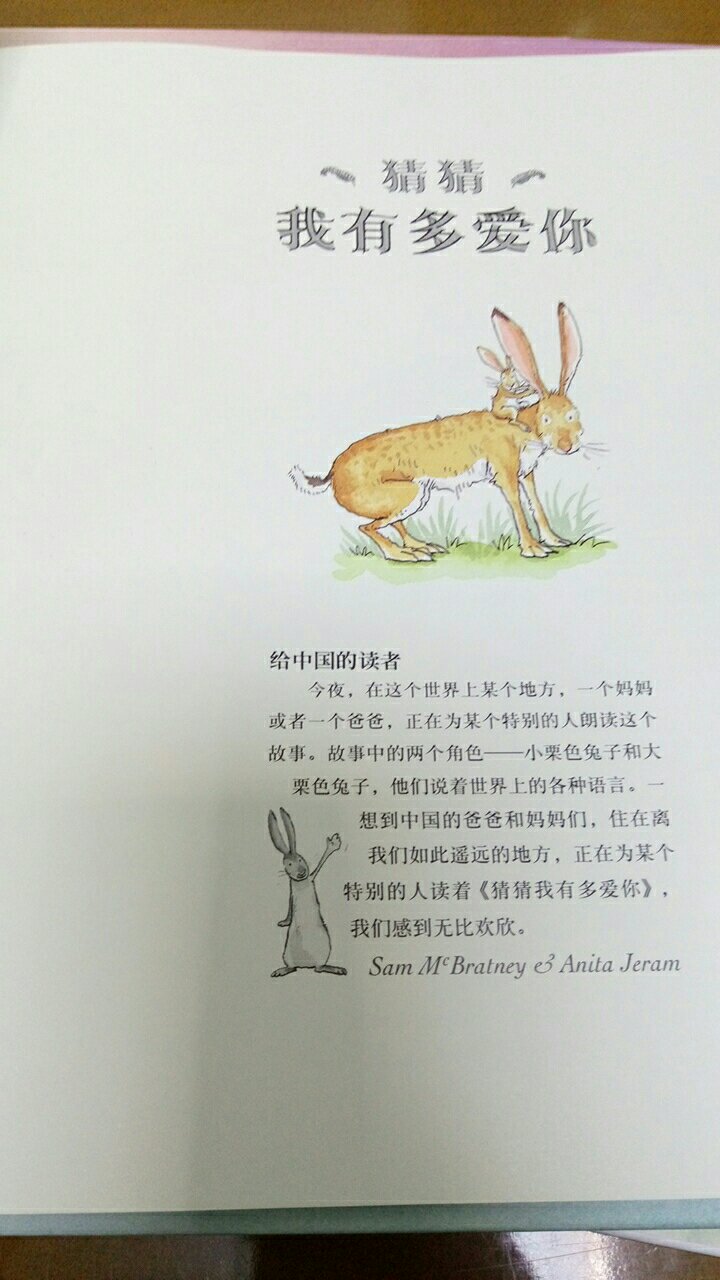 猜猜
我有多爱你
给中国的读者
今夜，在这个世界上某个地方，一个妈妈
或者一个爸爸，正在为某个特别的人朗读这个
故事。故事中的两个角色——小栗色兔子和大
栗色兔子，他们说着世界上的各种语言。一
想到中国的爸爸和妈妈们，住在离
我们如此遥远的地方，正在为某个
特别的人读着《猜猜我有多爱你》，
我们感到无比欢欣。
Sam McBratney & Anita Jeram